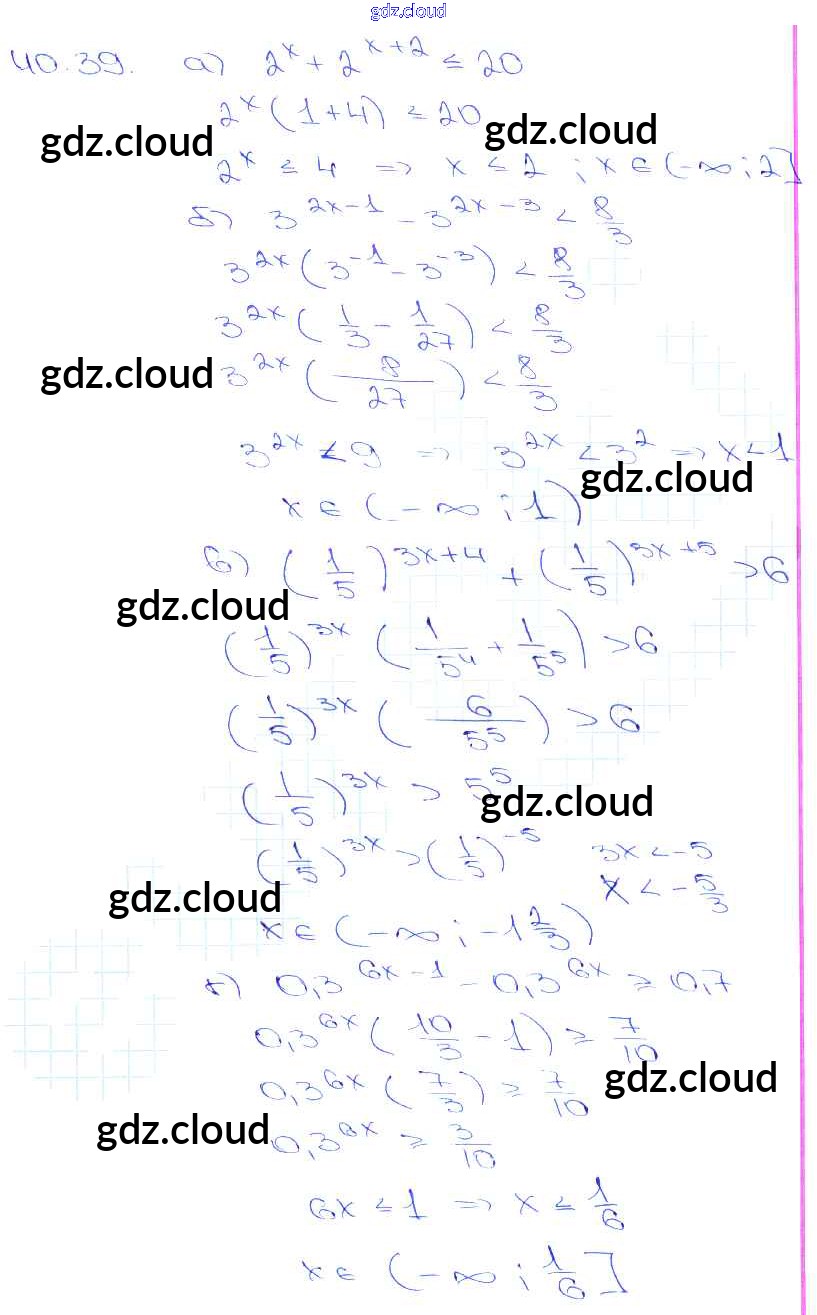 gdz.cloud
40.39. а) 2^x + 2^(x+2) ≤ 20
2^x (1+4) ≤ 20
gdz.cloud gdz.cloud
2^x ≤ 4 => x ≤ 2 ; x ∈ (-∞ ; 2]
б) 3^(2x-1) - 3^(2x-3) < 8/3
3^(2x) (3^(-1) - 3^(-3)) < 8/3
3^(2x) (1/3 - 1/27) < 8/3
gdz.cloud 3^(2x) (8/27) < 8/3
3^(2x) < 9 => 3^(2x) < 3^2 => x < 1
gdz.cloud
x ∈ (-∞ ; 1)
в) (1/5)^(3x+4) + (1/5)^(3x+5) > 6
gdz.cloud
(1/5)^(3x) (1/5^4 + 1/5^5) > 6
(1/5)^(3x) (6/5^5) > 6
(1/5)^(3x) > 5^5
gdz.cloud
(1/5)^(3x) > (1/5)^(-5) 3x < -5
x < -5/3
gdz.cloud
x ∈ (-∞ ; -1 2/3)
г) 0,3^(6x-1) - 0,3^(6x) ≥ 0,7
0,3^(6x) (10/3 - 1) ≥ 7/10
gdz.cloud
0,3^(6x) (7/3) ≥ 7/10
gdz.cloud 0,3^(6x) ≥ 3/10
6x ≤ 1 => x ≤ 1/6
x ∈ (-∞ ; 1/6]